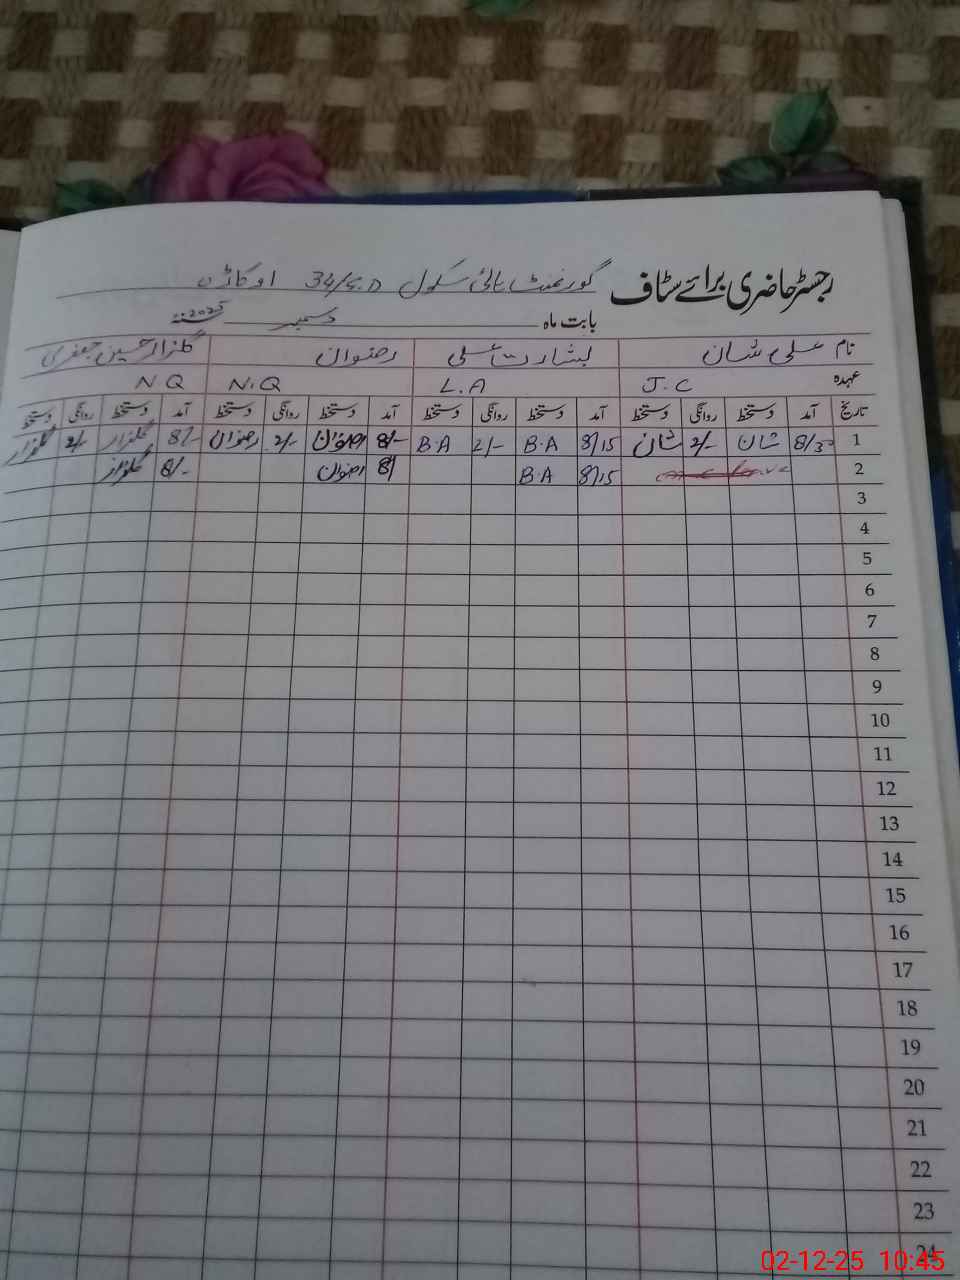 رجسٹر حاضری برائے سٹاف گورنمنٹ ہائی سکول 34/S.D اوکاڑہ
بابت ماہ دسمبر 2025ء
نام علی شان بشارت علی رضوان گلزار حسین جعفری
عہدہ J.C L.A N.Q N Q
تاریخ آمد دستخط روانگی دستخط آمد دستخط روانگی دستخط آمد دستخط روانگی دستخط آمد دستخط روانگی دستخط
1 8/30 شان 2/- شان 8/15 B.A 2/- B.A 8/- رضوان 2/- رضوان 8/- گلزار 2/- گلزار
2 8/15 B.A 8/ رضوان 8/- گلزار
3
4
5
6
7
8
9
10
11
12
13
14
15
16
17
18
19
20
21
22
23
24
02-12-25 10:45